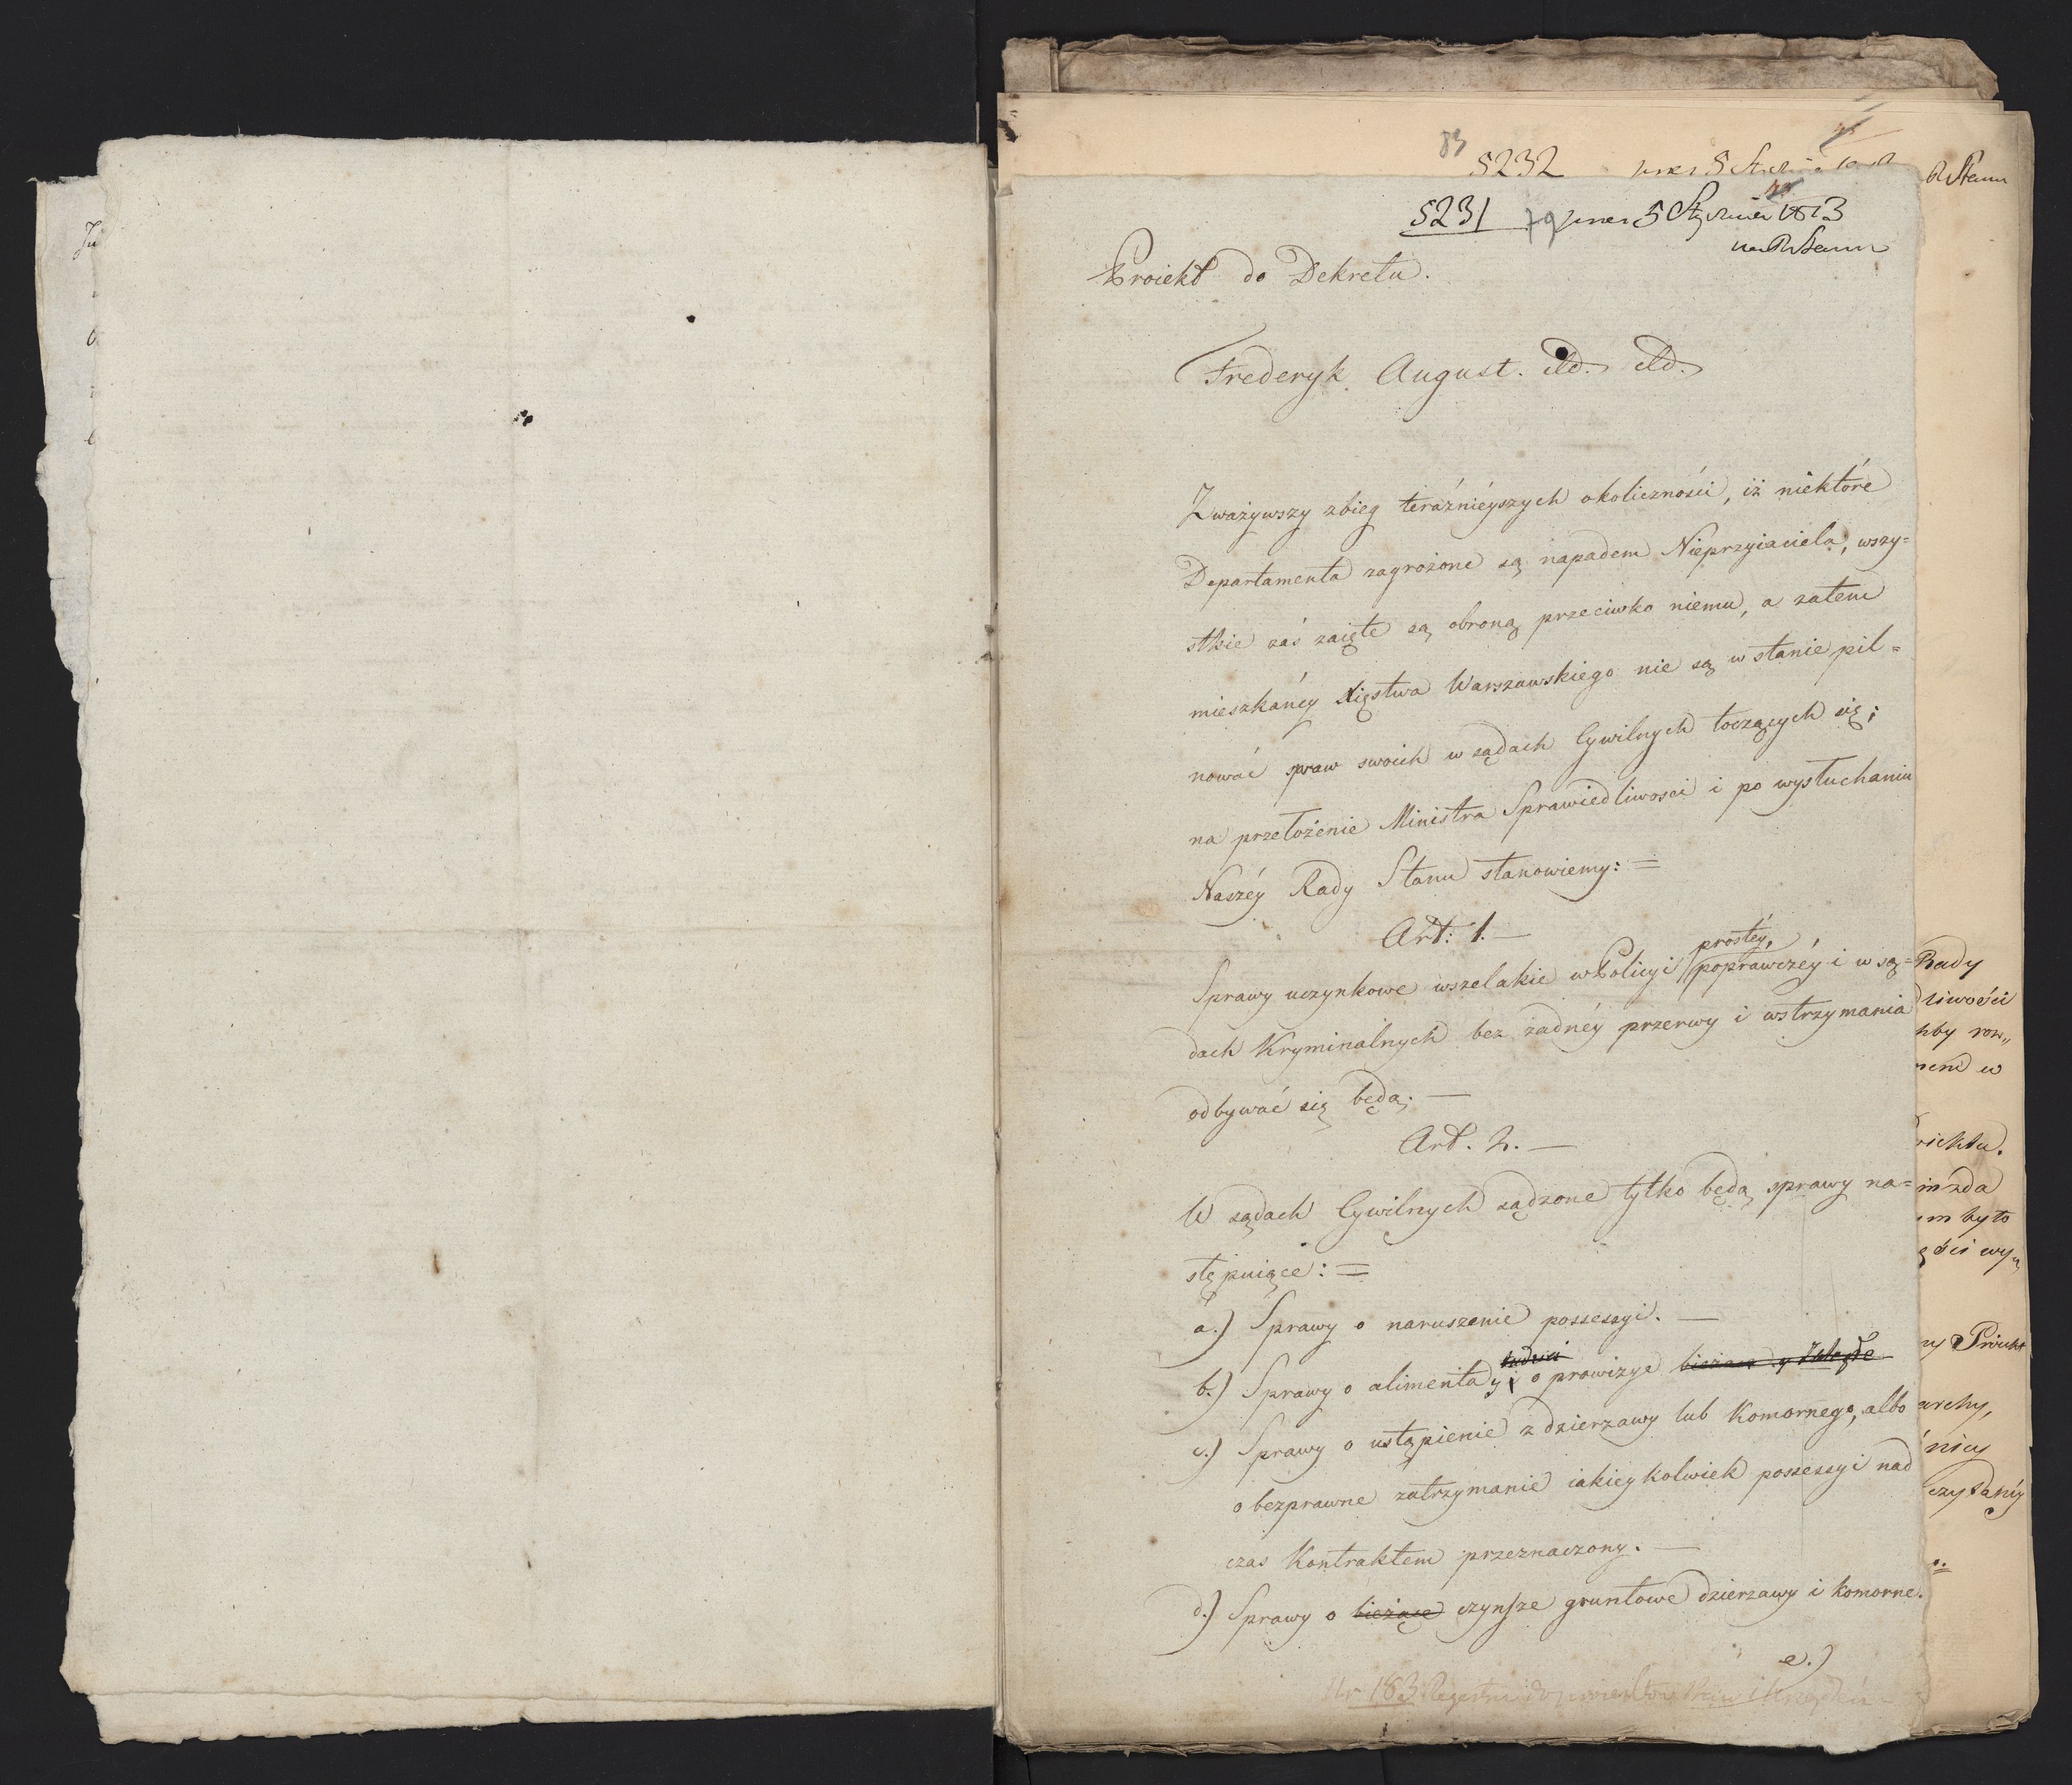 5232
5231 79 prez 5 Stycznia 1813
na R Stanu
Proiekt do Dekretu.
Frederyk August. etd. etd.
Zważywszy zbieg teráźnieyszych okoliczności, iż niektóre
Departamenta zagrożone są napadem Nieprzyiaciela, wszy=
stkie zaś zaięte są obroną przeciwko niemu, a zatem
mieszkańcy Xięstwa Warszawskiego nie są w stanie pil=
nować spraw swoich w sądach Cywilnych toczących się;
na przełożenie Ministra Sprawiedliwosci i po wysłuchaniu
Naszéy Rady Stanu stanowiemy: =
Art: 1. —
prostéy,
Sprawy uczynkowe wszelakie w Policyi poprawczéy i w są=
dach Kryminalnych bez żadnéy przerwy i wstrzymania
odbywać się będą. —
Art. 2. —
W sądach Cywilnych sądzone tylko będą sprawy na=
stępuiące: =
a.) Sprawy o naruszenie possessyi. —
b.) Sprawy o alimenta y o prowizye bieżące y Zaległe
c.) Sprawy o ustąpienie z dzierzawy lub Komornego, albo
o bezprawne zatrzymanie iakieykolwiek possessyi nad
czas Kontraktem przeznaczony. —
d.) Sprawy o bieżące czynsze gruntowe dzierzawy i komorne.
e.)
Nr 183
R Stanu
Rady
dliwości
hby roz„
nem w
oiektu.
inzda
ym było
archy,
nicy